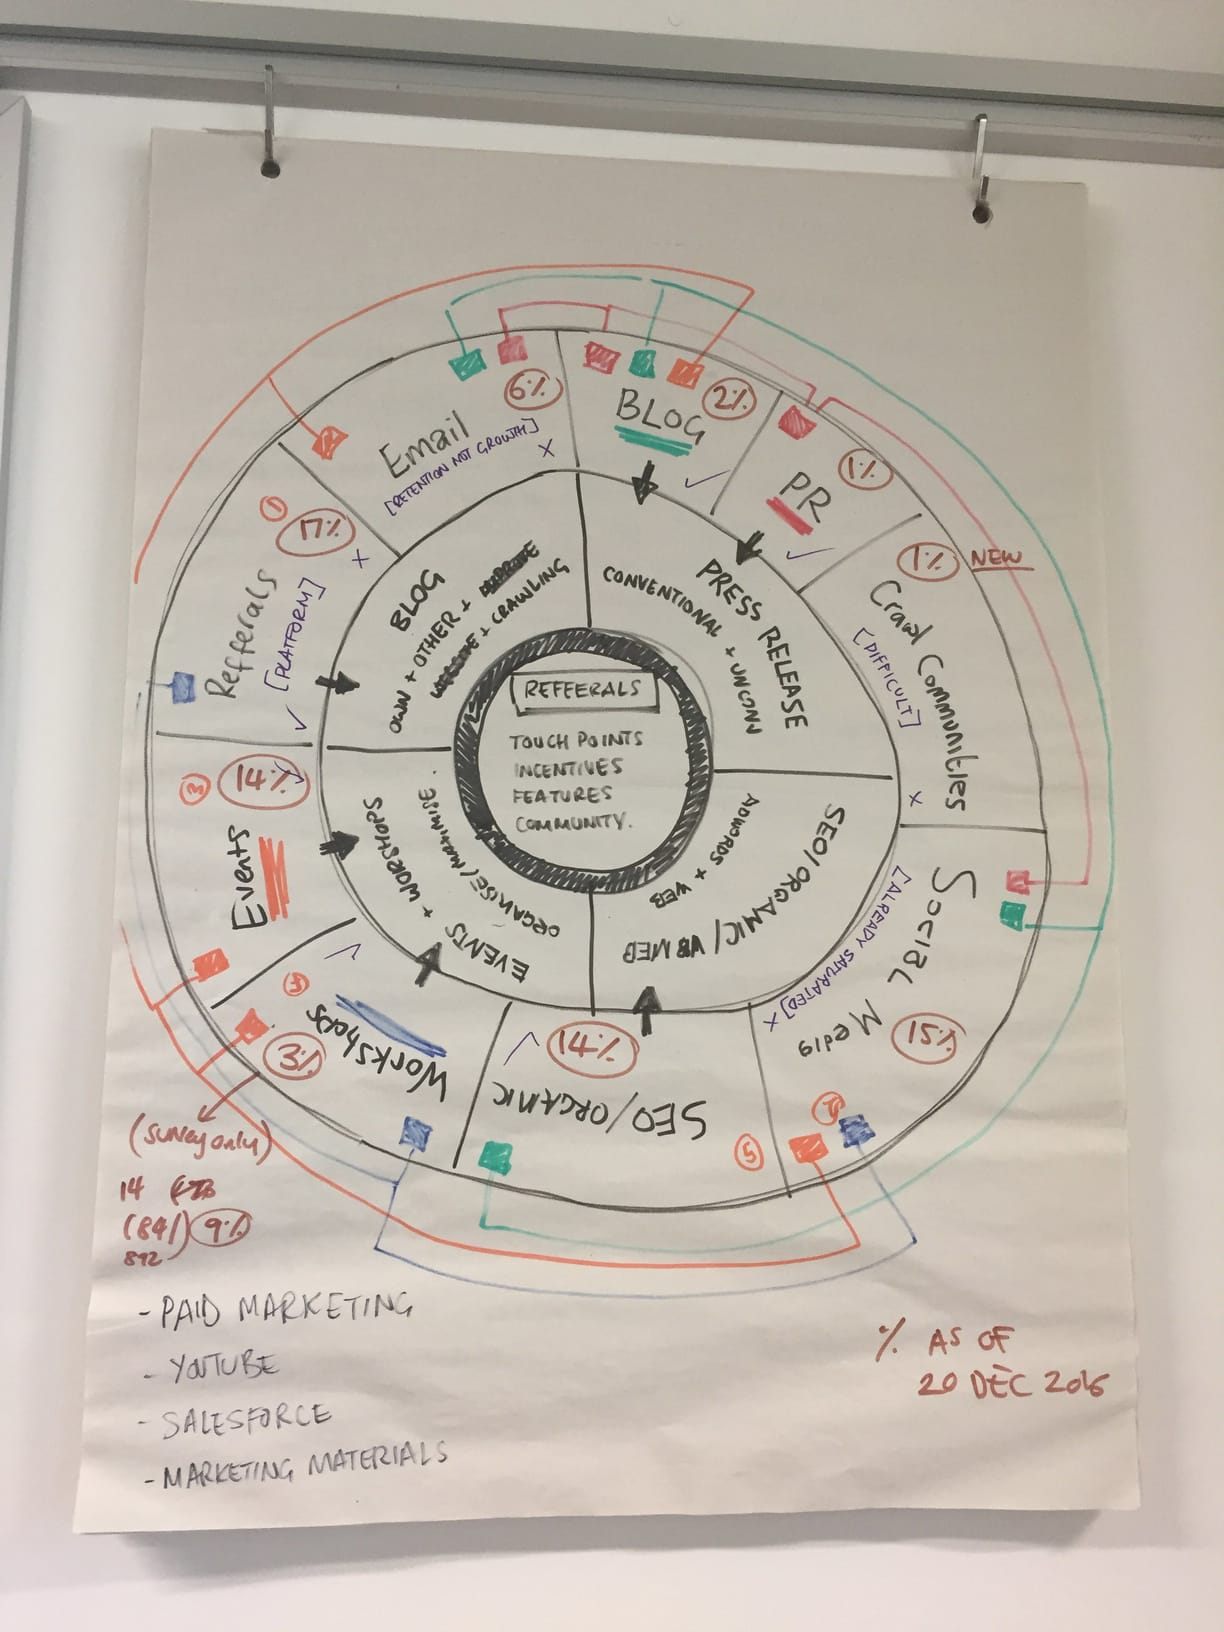 6%
Email
[RETENTION NOT GROWTH]
X
2%
BLOG
1%
PR
1% NEW
Crawl Communities
[DIFFICULT]
X
SOCIAL
Media
[ALREADY SATURATED]
X
15%
5
14%
SEO/ORGANIC
Workshops
3%
(survey only)
14
(841)
892
9%
3
14%
Events
1
17%
Refferals
[PLATFORM]
X
BLOG
OWN + OTHER +
+ CRAWLING
PRESS RELEASE
CONVENTIONAL + UNCONV
SEO/ORGANIC/
WEB
ADWORDS + WEB
EVENTS + WORSHOPS
ORGANISE/MAXIMISE.
REFFERALS
TOUCH POINTS
INCENTIVES
FEATURES
COMMUNITY.
- PAID MARKETING
- YOUTUBE
- SALESFORCE
- MARKETING MATERIALS
% AS OF
20 DEC 2016